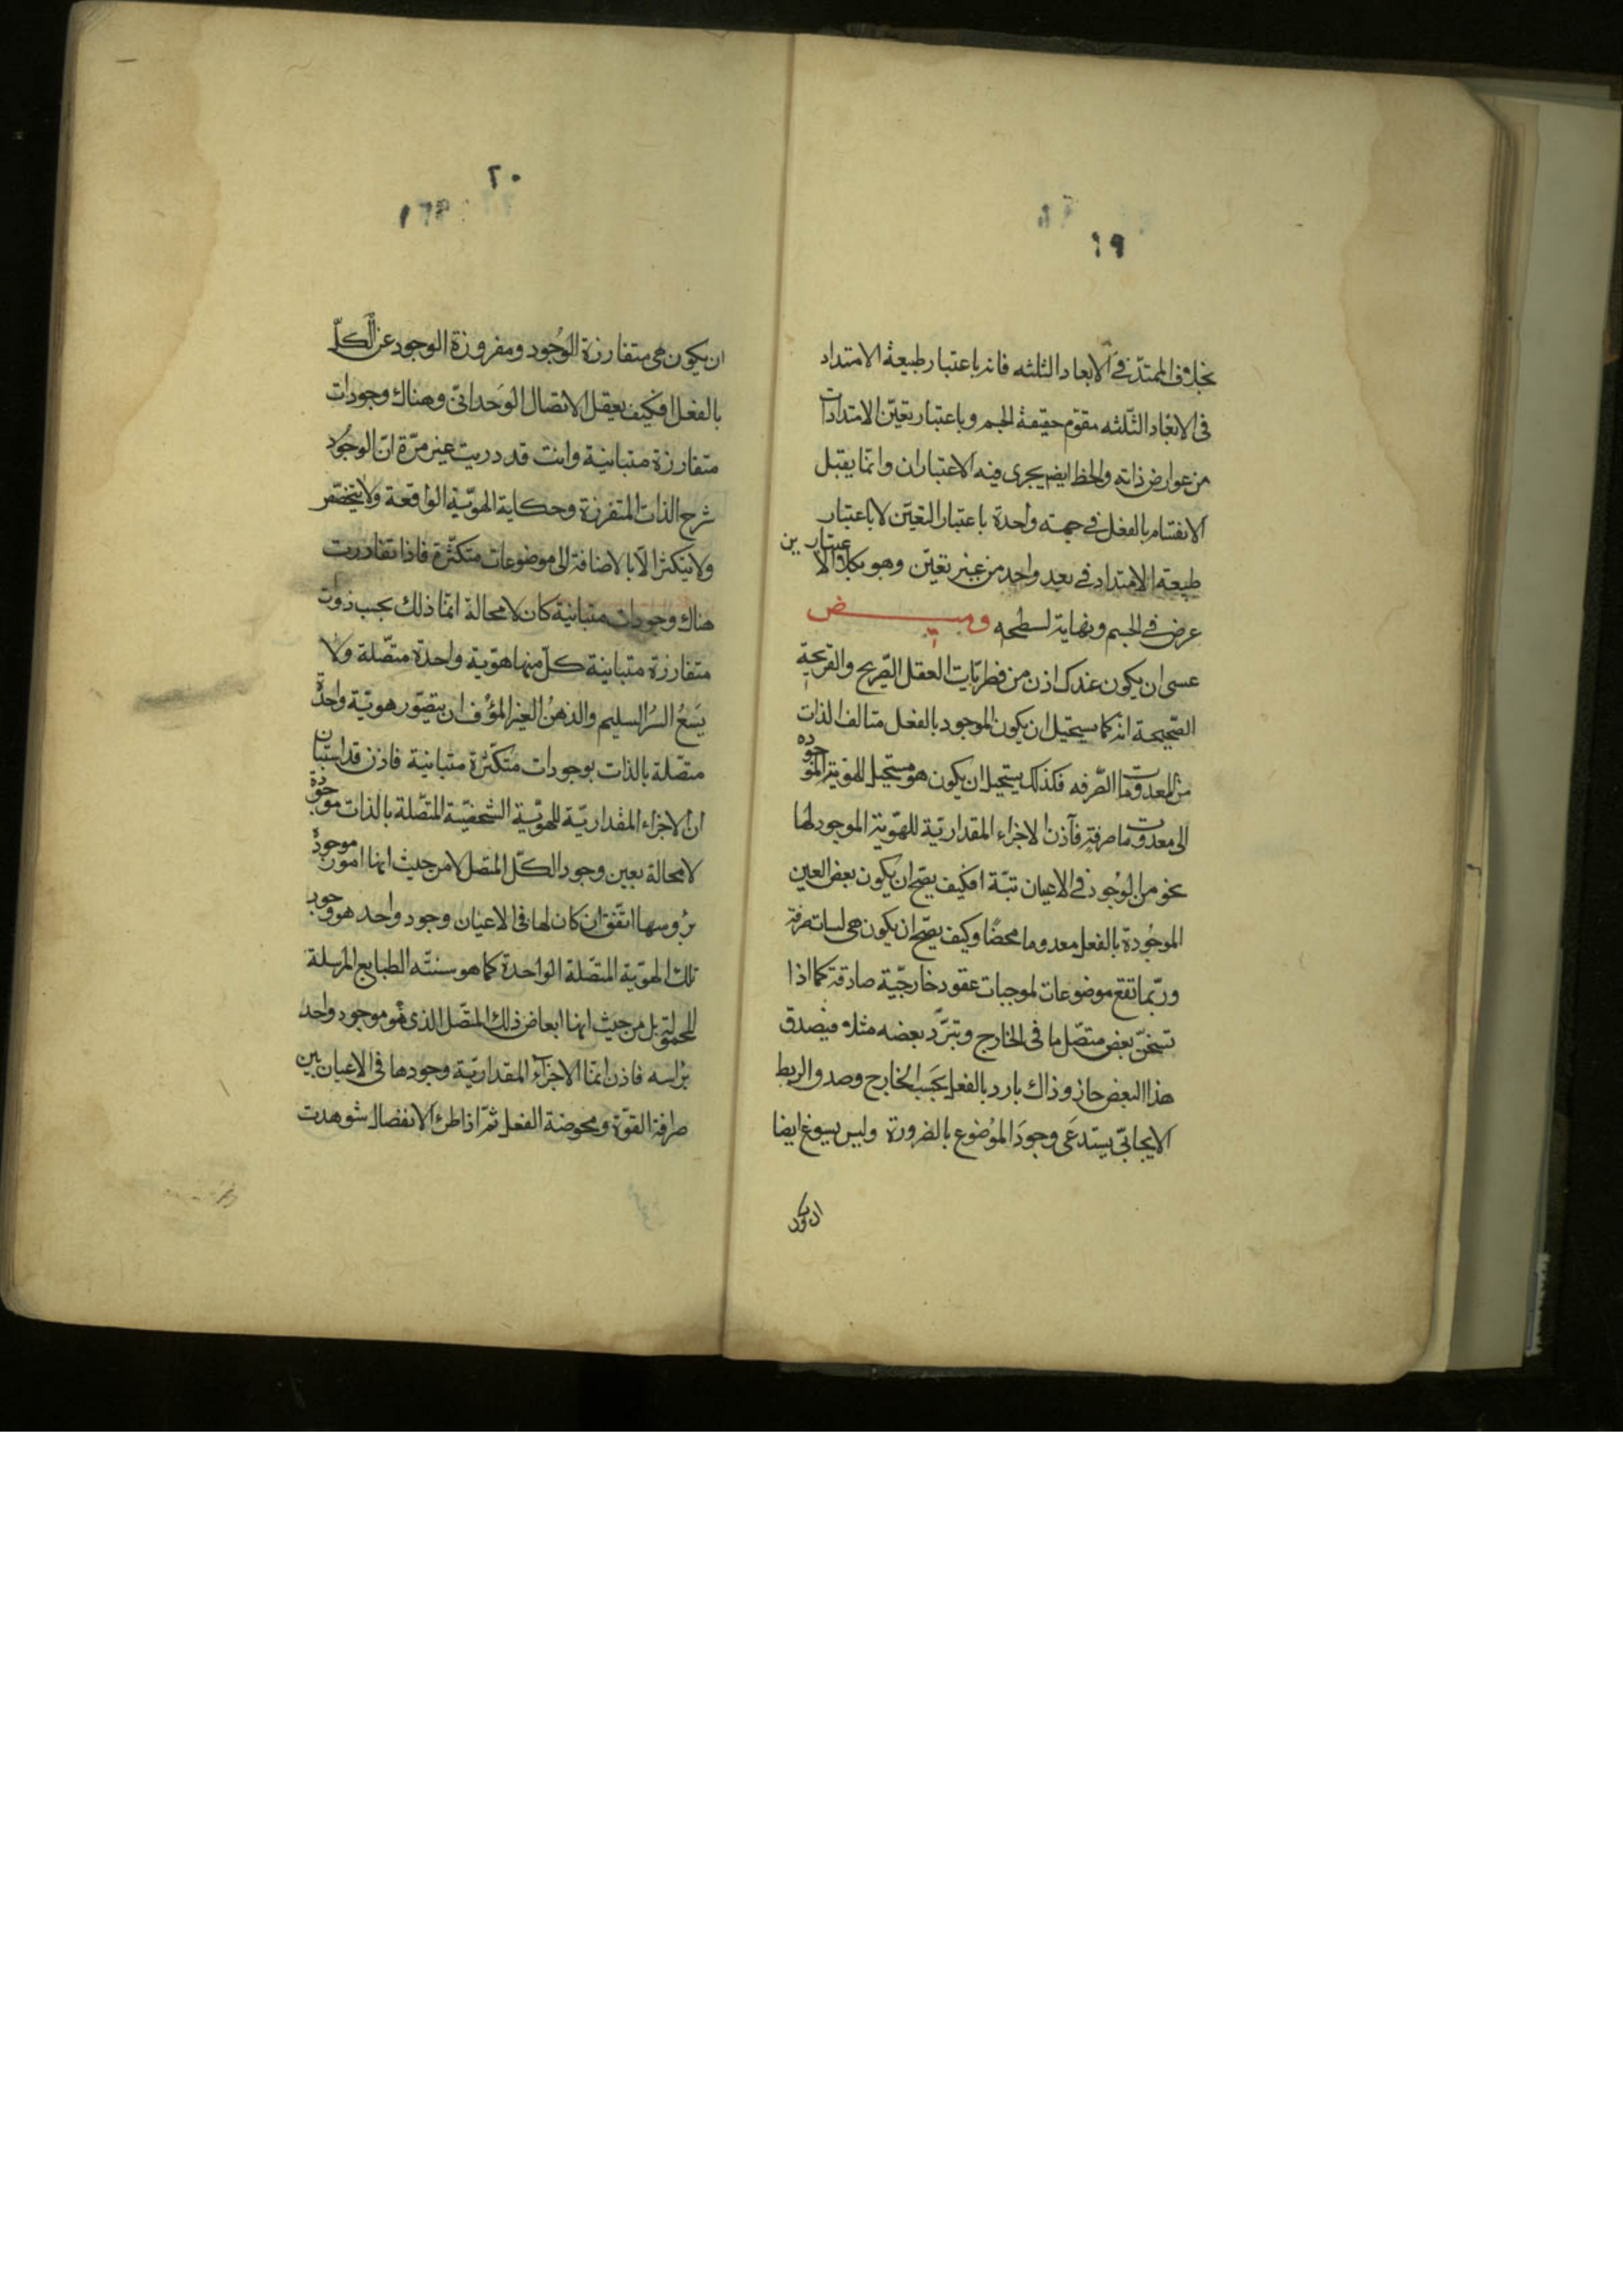 ١٩
بخلاف الممتدّ فى الابعاد الثلثه فانه باعتبار طبيعة الامتداد
فى الابعاد الثّلثه مقوّم حقيقة الجسم وباعتبار تعيّن الامتدادات
من عوارض ذاته والخط ايضا يجرى فيه الاعتباران وانّما يقبل
الانقسام بالفعل فى جهته واحدة باعتبار التعيّن لا باعتبار
طبيعة الامتداد فى بعد واحد من غير تعيّن وهو بكلا الاعتبارين
عرض فى الجسم ونهاية لسطحه وميض
عسى ان يكون عندك اذن من فطريّات العقل الصّريح والقريحة
الصّحيحة انه كما يستحيل ان يكون الموجود بالفعل متالف الذات
من المعدومات الصّرفه فكذلك يستحيل ان يكون هو مستحيل الهوية الموجوده
الى معدومات صرفة فآذن الاجزاء المقداريّة للهوّية الموجود لها
نحو من الوُجود فى الاعيان تبّة افكيف يصحّ ان يكون بعض العين
الموجُودة بالفعل معدوما محضًا وكيف يصحّ ان يكون هى ليسات صرفة
وربّما تقع موضوعات لموجبات عقود خارجّية صادقة كما اذا
تسخّن بعض متصّل ما فى الخارج وتبرّد بعضه مثلا فيصدق
هذا البعض حارّ وذاك بارد بالفعل بحَسب الخارج وصدق الربط
الايجابىّ يستدعَى وجودَ الموُضوع بالضرورة وليس يسوغ ايضا
ان يكون
٢٠
ان يكون هى متفارزة الوُجود ومفروزة الوجود عن الكلّ
بالفعل افكيف يعقل الاتصال الوَحدانىّ وهناك وجودات
متفارزة متباينة وانت قد دريت غير مرّة انّ الوجُود
شرح الذات المتفرزة وحكاية الهوّية الواقعة ولا يتخصّص
ولا يتكثر الّا بالاضافة الى موضوعات متكثّرة فاذا تفارزت
هناك وجودات متباينة كان لا محالة انّما ذلك بحسب ذوات
متفارزة متباينة كلّ منها هوّية واحدة متصّلة ولا
يسَعُ السرُ السليم والذهنُ الغير المؤُف ان يتصوّر هويّة واحدة
متصّلة بالذات بوجودات متكثّرة متباينة فاذن قد استبان
ان الاجزاء المقداريّة للهوّية الشخصيّة المتصّلة بالذات موجودة
لا محالة بعين وجود الكّل المتصل لا من حيث انها امور موجودة
برُوسها اتّفق ان كان لها فى الاعيان وجود واحد هو وجود
تلك الهوّية المتصّلة الواحدة كما هو سنتّه الطبايع المرسلة
المحمولة بل من حيث انها ابعاض ذلك المتصّل الذى هُو موجود واحد
برُاسه فاذن انمّا الاجزآء المقداريّة وجودها فى الاعيان بين
صرافة القوّة ومحوضة الفعل ثمّ اذا طرء الانفصال شوهدت